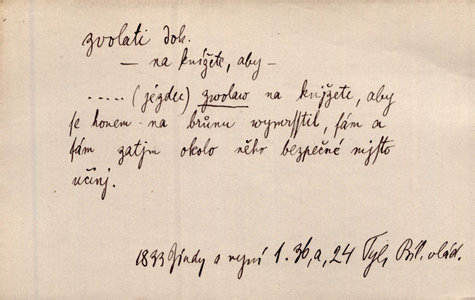 zvolati dok.
— na knížete, aby —
..... (jézdec) zwolaw na knjžete, aby
se honem na brůnu wymrsstil, sám a
sám zatjm okolo něho bezpečné mjsto
učinj.
1833 Jindy a nynj 1. 36, a, 24 Tyl, Bil. vlád.